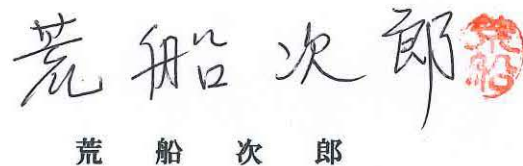 荒船次郎 荒船
荒船次郎